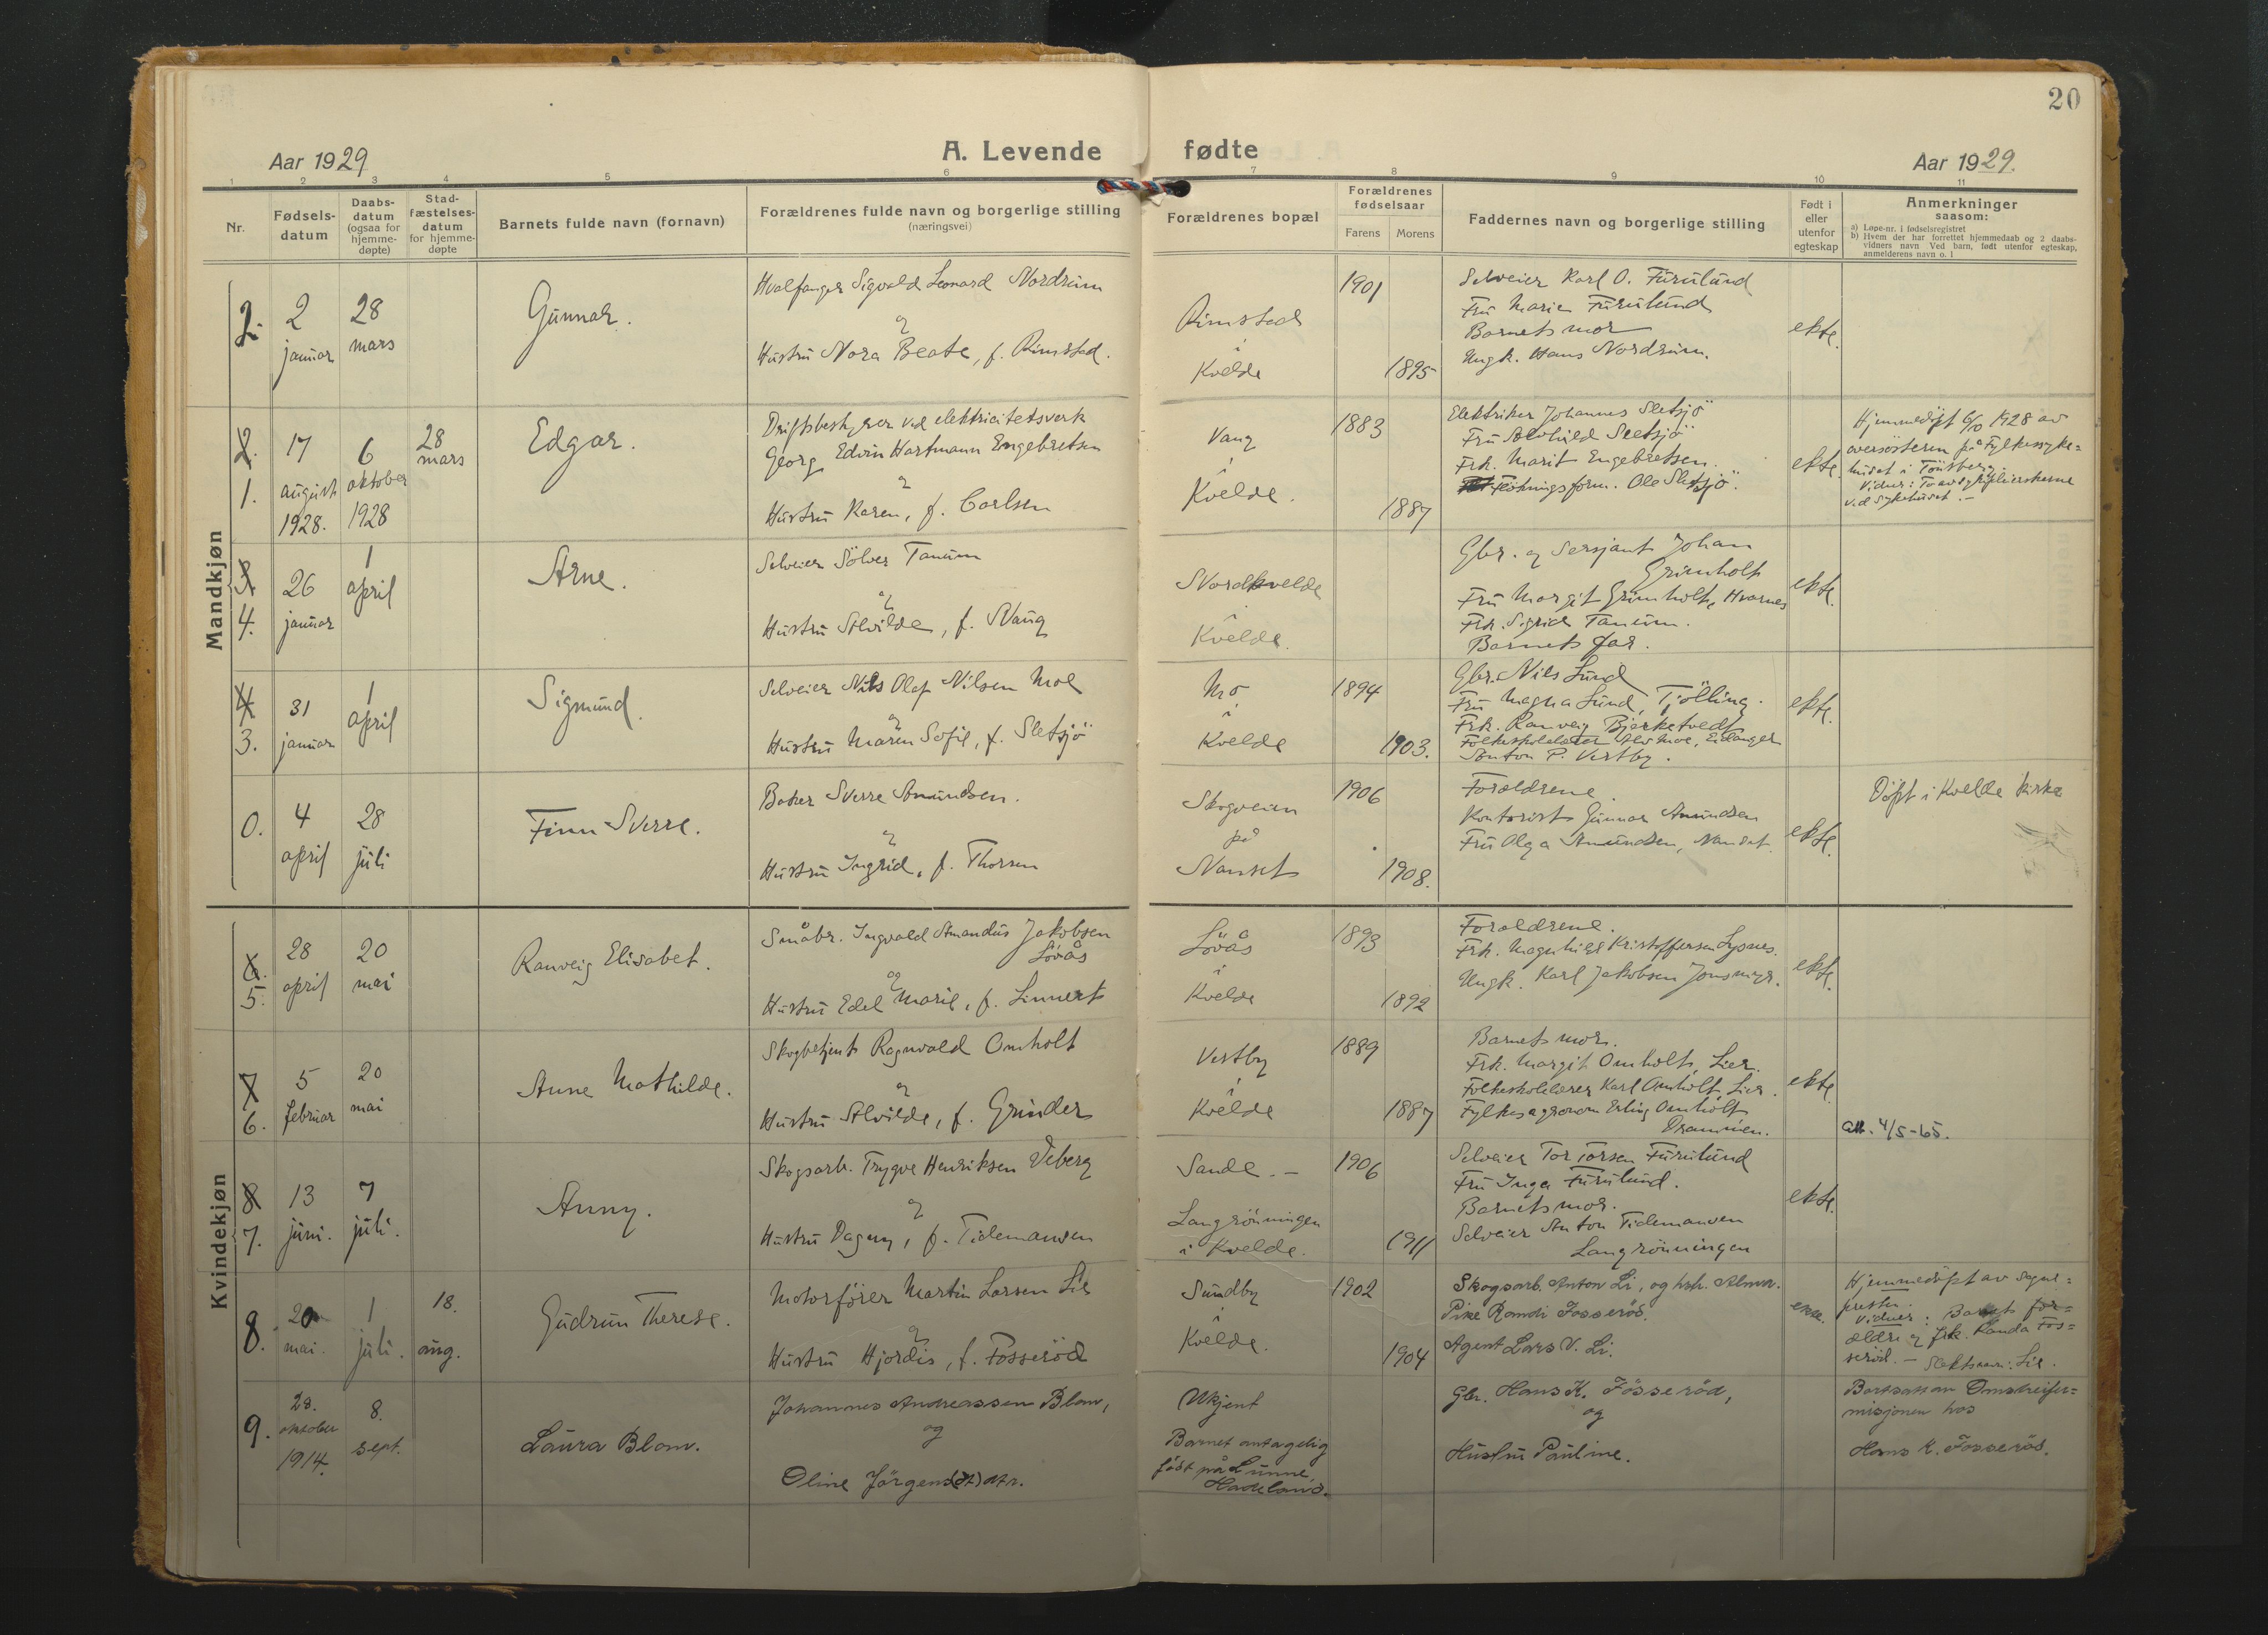 20
Aar 1929
A. Levende
fødte
Aar 1929.
1 2 3 4 5 6 7 8 9 10 11
Nr.
Fødsels-
datum
Daabs-
datum
(ogsaa for
hjemme-
døpte)
Stad-
fæstelses-
datum
for hjemme-
døpte
Barnets fulde navn (fornavn)
Forældrenes fulde navn og borgerlige stilling
(næringsvei)
Forældrenes bopæl
Forældrenes
fødselsaar
Farens Morens
Faddernes navn og borgerlige stilling
Født i
eller
utenfor
egteskap
Anmerkninger
saasom:
a) Løpe-nr. i fødselsregistret
b) Hvem der har forrettet hjemmedaab og 2 daabs-
vidners navn Ved barn, født utenfor egteskap,
anmelderens navn o. l
Mandkjøn
2.
2
januar
28
mars
Gunnar.
Hvalfanger Sigvald Leonard Nordrum
og
Hustru Nora Beate, f. Rimstad.
Rimstad
i
Kvelde
1901
1895
Selveier Karl O. Furulund
Fru Marie Furulund
Barnets mor
Ungk. Hans Nordrum.
ekte.
2.
1.
17
august
1928.
6
oktober
1928
28
mars
Edgar.
Driftsbestyrer ved elektricitetsverk
Georg Edvin Hartmann Engebretsen
og
Hustru Karen, f. Carlsen
Vaug
i
Kvelde.
1883
1887
Elektriker Johannes Sletsjö
Fru Solvhild Sletsjö
Frk. Marit Engebretsen.
Fløtningsform. Ole Sletsjö.
ekte.
Hjemmedöpt 6/10 1928 av
oversösteren på Fylkessyke=
huset i Tönsberg.
Vidner: To av sykepleierskerne
ved sykehuset. —
3
4.
26
januar
1
april
Arne.
Selveier Sölver Tanum
og
Hustru Alvilde, f. Vaug
Nordkvelde
i
Kvelde.
Gbr. og Sersjant Johan
Grimholt
Fru Margit Grimholt, Hvarnes
Frk. Sigrid Tanum.
Barnets far.
ekte.
4
3.
31
januar
1
april
Sigmund.
Selveier Nils Olaf Nilsen Moe
og
Hustru Maren Sofie, f. Sletsjö
Mo
i
Kvelde
1894
1903.
Gbr. Nils Lund
Fru Magna Lund, Tjölling.
Frk. Ranveig Bjerketvedt
Folkeskolelærer Moe, Eidanger
Anton P. Vestby.
ekte.
0.
4
april
28
juli
Finn Sverre.
Baker Sverre Amundsen.
og
Hustru Ingrid, f. Thorsen
Skogveien
på
Nanset
1906
1908.
Forældrene.
Kontorist Gunnar Amundsen
Fru Olga Amundsen, Nanset.
ekte.
Döpt i Kvelde kirke
Kvindekjøn
6.
5.
28
april
20
mai
Ranveig Elisabet.
Småbr. Ingvald Amandus Jakobsen
Lövås
og
Hustru Edel Marie, f. Linnert
Lövås
i
Kvelde
1893
1892
Forældrene.
Frk. Magnhild Kristoffersen Lysnes.
Ungk. Karl Jakobsen Jonsmyr.
ekte.
7
6.
5
februar
20
mai
Anne Mathilde.
Skogbetjent Ragnvald Omholt
og
Hustru Alvilde, f. Grinder
Vestby
i
Kvelde
1889
1887
Barnets mor.
Frk. Margit Omholt, Lier.
Folkeskolelærer Karl Omholt, Lier.
Fylkesagronom Erling Omholt
Drammen.
ekte.
att. 4/5-65.
8
7.
13
juni.
7
juli.
Anny.
Skogsarb. Trygve Henriksen Veberg
og
Hustru Dagny, f. Tidemansen
Sande. —
Langrönningen
i Kvelde.
1906
1911
Selveier Tor Torsen Furulund
Fru Inga Furulund.
Barnets mor.
Selveier Anton Tidemansen
Langrönningen
ekte.
8.
20
mai.
1
juli.
18.
aug.
Gudrun Therese.
Motorförer Martin Larsen Lie
og
Hustru Hjördis, f. Fosseröd
Sundby
i
Kvelde.
1902
1904
Skogsarb. Anton Li, og hstr. Alma.
Pike Randi Fosseröd.
Agent Lars V. Li.
ekte.
Hjemmedöpt av sogne=
presten.
Vidner: Barnets for=
ældre og frk. Randa Fos=
seröd. — Slektsnavn: Lie.
9.
28.
oktober
1914.
8.
sept.
Laura Blom.
Johannes Andreassen Blom,
og
Oline Jörgens(dt) dtr.
Ukjent
Barnet antagelig
född på Lunne,
Hadeland.
Gbr. Hans K. Fösseröd,
og
Hustru Pauline.
Bortsatt av Omstreifer=
misjonen hos
Hans K. Fosseröd.